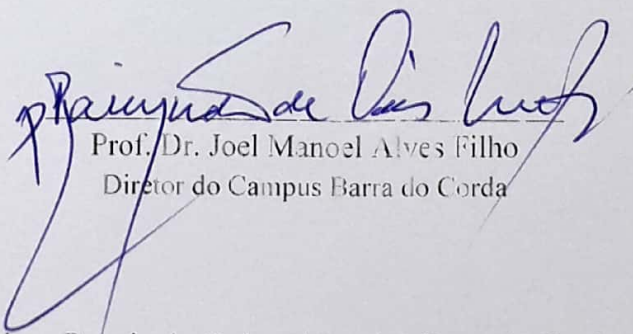 Raimundo de
Prof. Dr. Joel Manoel Alves Filho
Diretor do Campus Barra do Corda